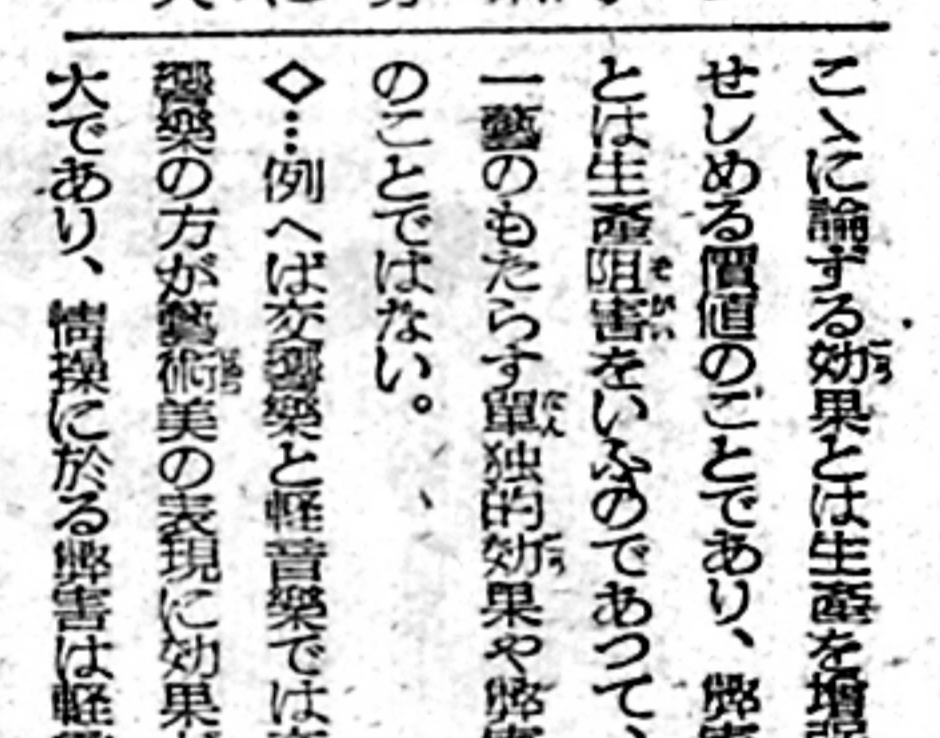 こゝに論ずる効果とは生産を増強
せしめる價値のごとであり、弊害
とは生産阻害をいふのであつて、
一藝のもたらす單独的効果や弊害
のことではない。
◇…例へば交響樂と軽音樂では
響樂の方が藝術美の表現に効果
大であり、情操に於る弊害は軽